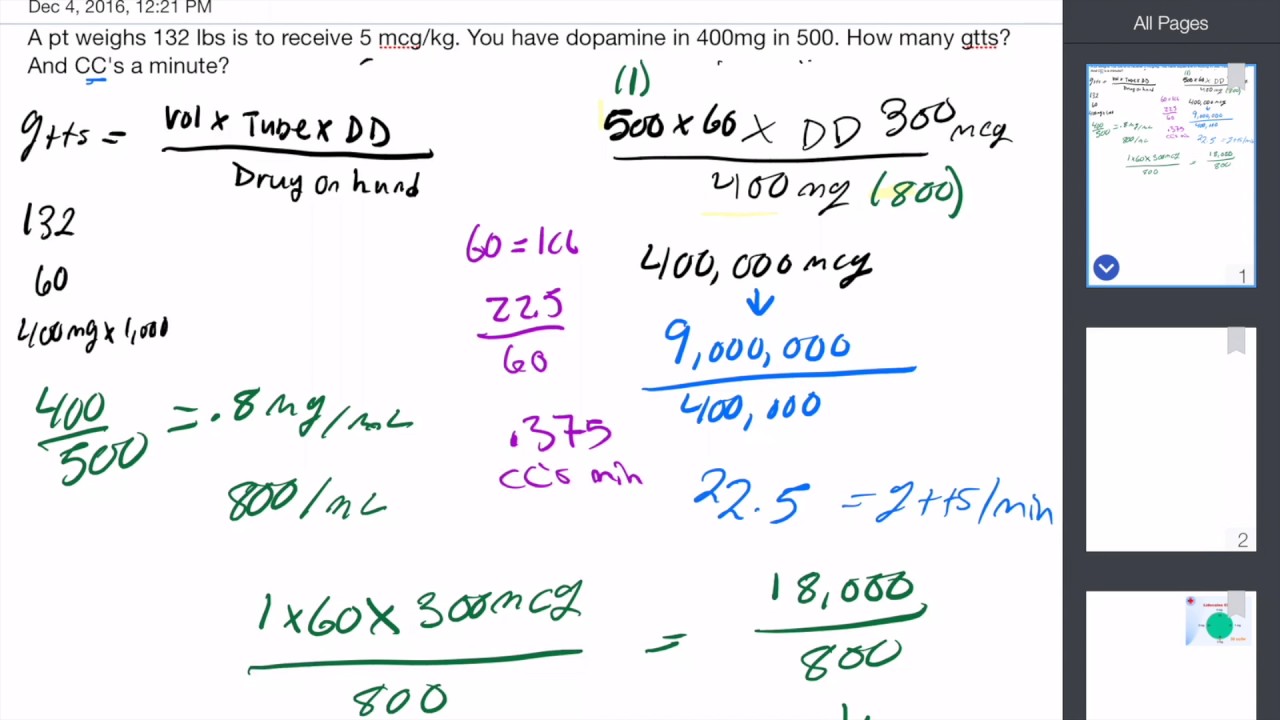 Dec 4, 2016, 12:21 PM
All Pages
A pt weighs 132 lbs is to receive 5 mcg/kg. You have dopamine in 400mg in 500. How many gtts?
And CC's a minute?
gtts = vol x Tube x DD
Drug on hand
(1)
500 x 60 x DD 300 mcg
400 mg (800)
132
60
400mg x 1,000
60 = 1cc
22.5
60
.375
cc's min
400,000 mcg
↓
9,000,000
400,000
22.5 = gtts/min
400
500
= .8 mg/mL
800/mL
1 x 60 x 300 mcg
800
=
18,000
800
1
2